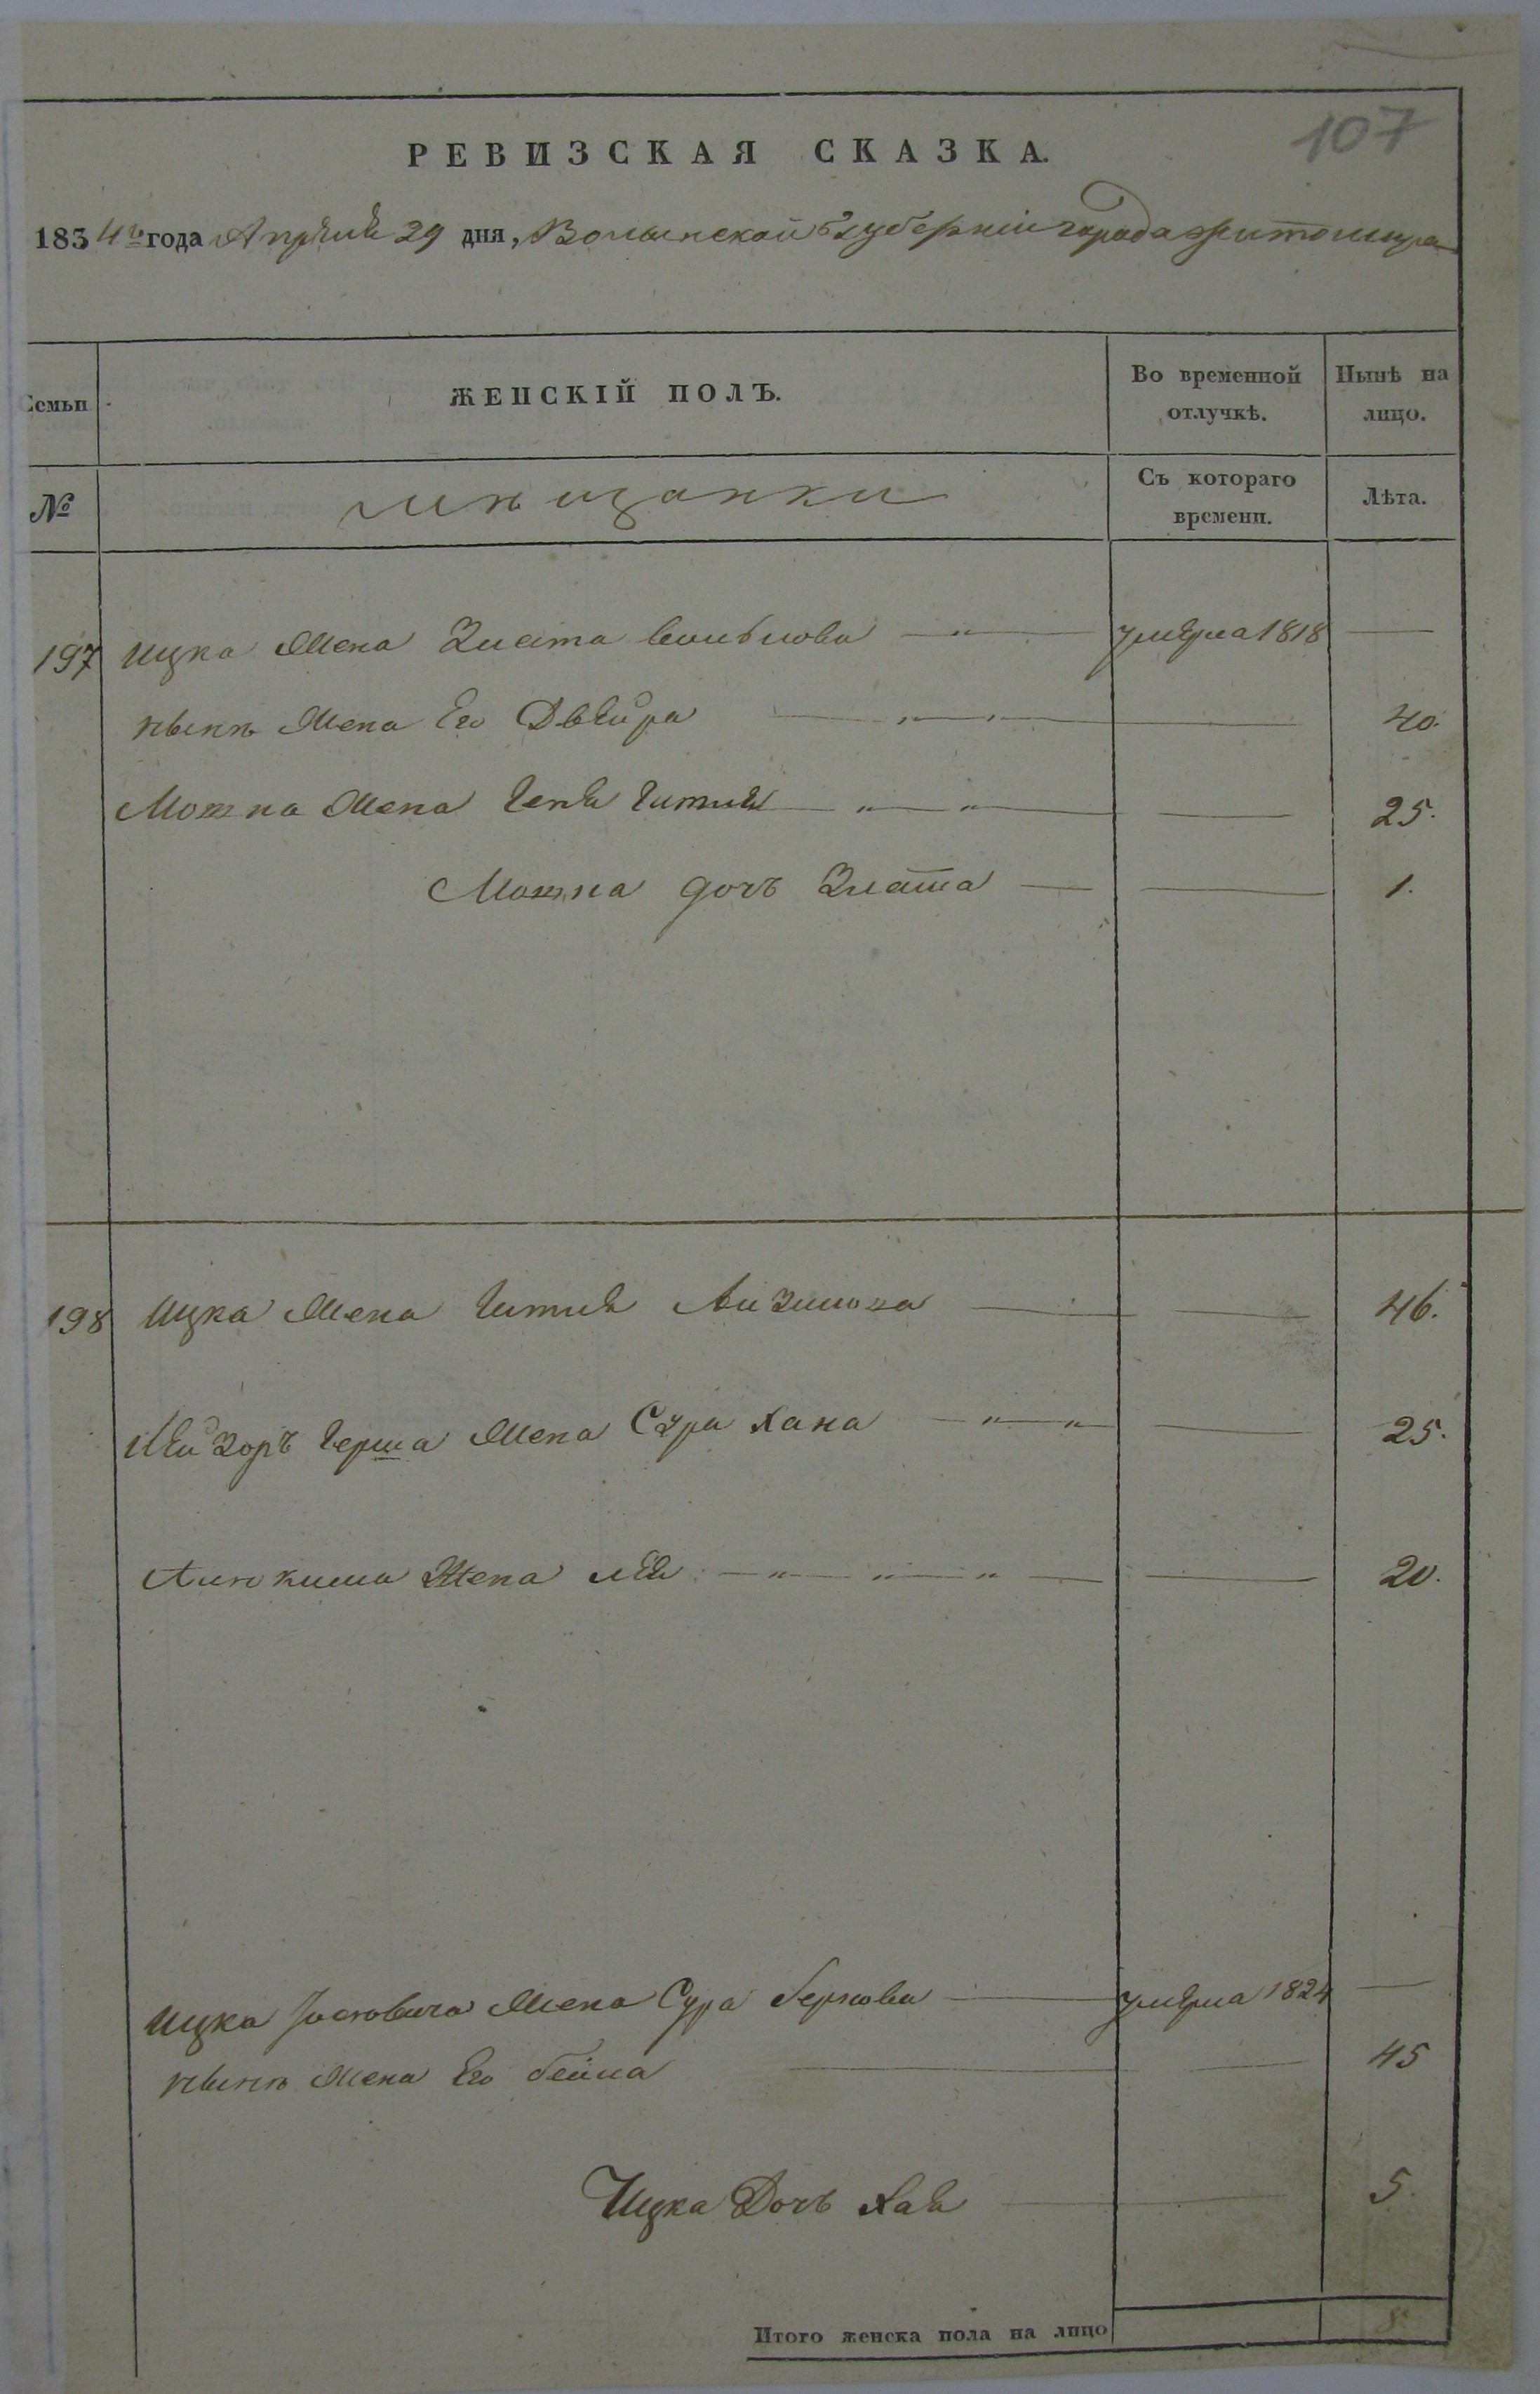 107
РЕВИЗСКАЯ СКАЗКА.
1834го года Апреля 29 дня, Волынской Губерніи города Житомира
Семьи ЖЕНСКІЙ ПОЛЪ. Во временной отлучкѣ. Нынѣ на лицо.
№ мѣщанки Съ котораго времени. Лѣта.
197 Ицка Жена Злата Вольпова — " — умерла 1818 —
нынѣ Жена Его Двейра — " — " — — 40.
Мошка Жена Геня Гитля — " — " — — 25.
Мошка дочъ Злата — — 1.
198 Ицка Жена Гитля — — 46.
Лейзоръ Герша Жена Сура Хана — " — " — 25.
Жена Лея — " — " — " — — 20.
Ицка Жена Сура Беркова — умерла 1824 —
нынѣ Жена Его Бейла — — 45
Ицка Дочъ Хая — — 5.
Итого женска пола на лицо 8.